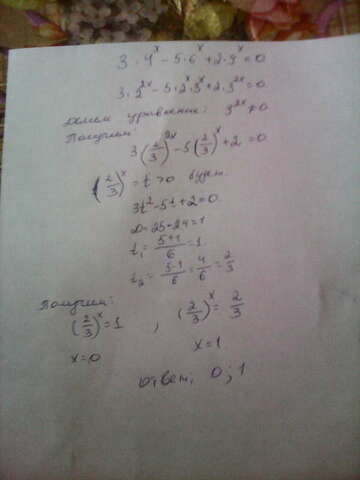 3 · 4^x - 5 · 6^x + 2 · 9^x = 0
3 · 2^{2x} - 5 · 2^x · 3^x + 2 · 3^{2x} = 0.
делим уравнение: 3^{2x} ≠ 0.
Получим
3(2/3)^{2x} - 5(2/3)^x + 2 = 0.
(2/3)^x = t > 0 будем.
3t² - 5t + 2 = 0.
D = 25 - 24 = 1
t₁ = (5+1)/6 = 1.
t₂ = (5-1)/6 = 4/6 = 2/3
Получим:
(2/3)^x = 1 , (2/3)^x = 2/3
x = 0 x = 1
Ответ: 0 ; 1